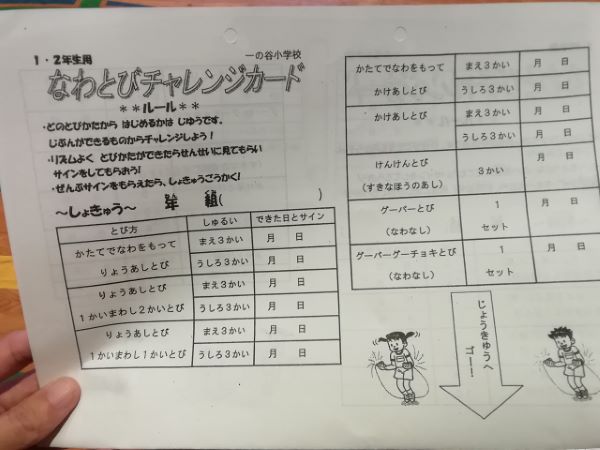 1・2年生用
一の谷小学校
なわとびチャレンジカード
**ルール**
・どのとびかたから はじめるかは じゆうです。
じぶんができるものからチャレンジしよう！
・リズムよく とびかたができたらせんせいに見てもらい
サインをしてもらおう！
・ぜんぶサインをもらえたら、しょきゅうごうかく！
年 組( )
～しょきゅう～
とび方 しゅるい できた日とサイン
かたてでなわをもって
りょうあしとび
まえ3かい 月 日
うしろ3かい 月 日
りょうあしとび
1かいまわし2かいとび
まえ3かい 月 日
うしろ3かい 月 日
りょうあしとび
1かいまわし1かいとび
まえ3かい 月 日
うしろ3かい 月 日
かたてでなわをもって
かけあしとび
まえ3かい 月 日
うしろ3かい 月 日
かけあしとび
まえ3かい 月 日
うしろ3かい 月 日
けんけんとび
（すきなほうのあし）
3かい
月 日
グーパーとび
（なわなし）
1
セット
月 日
グーパーグーチョキとび
（なわなし）
1
セット
月 日
じょうきゅうへ
ゴー！